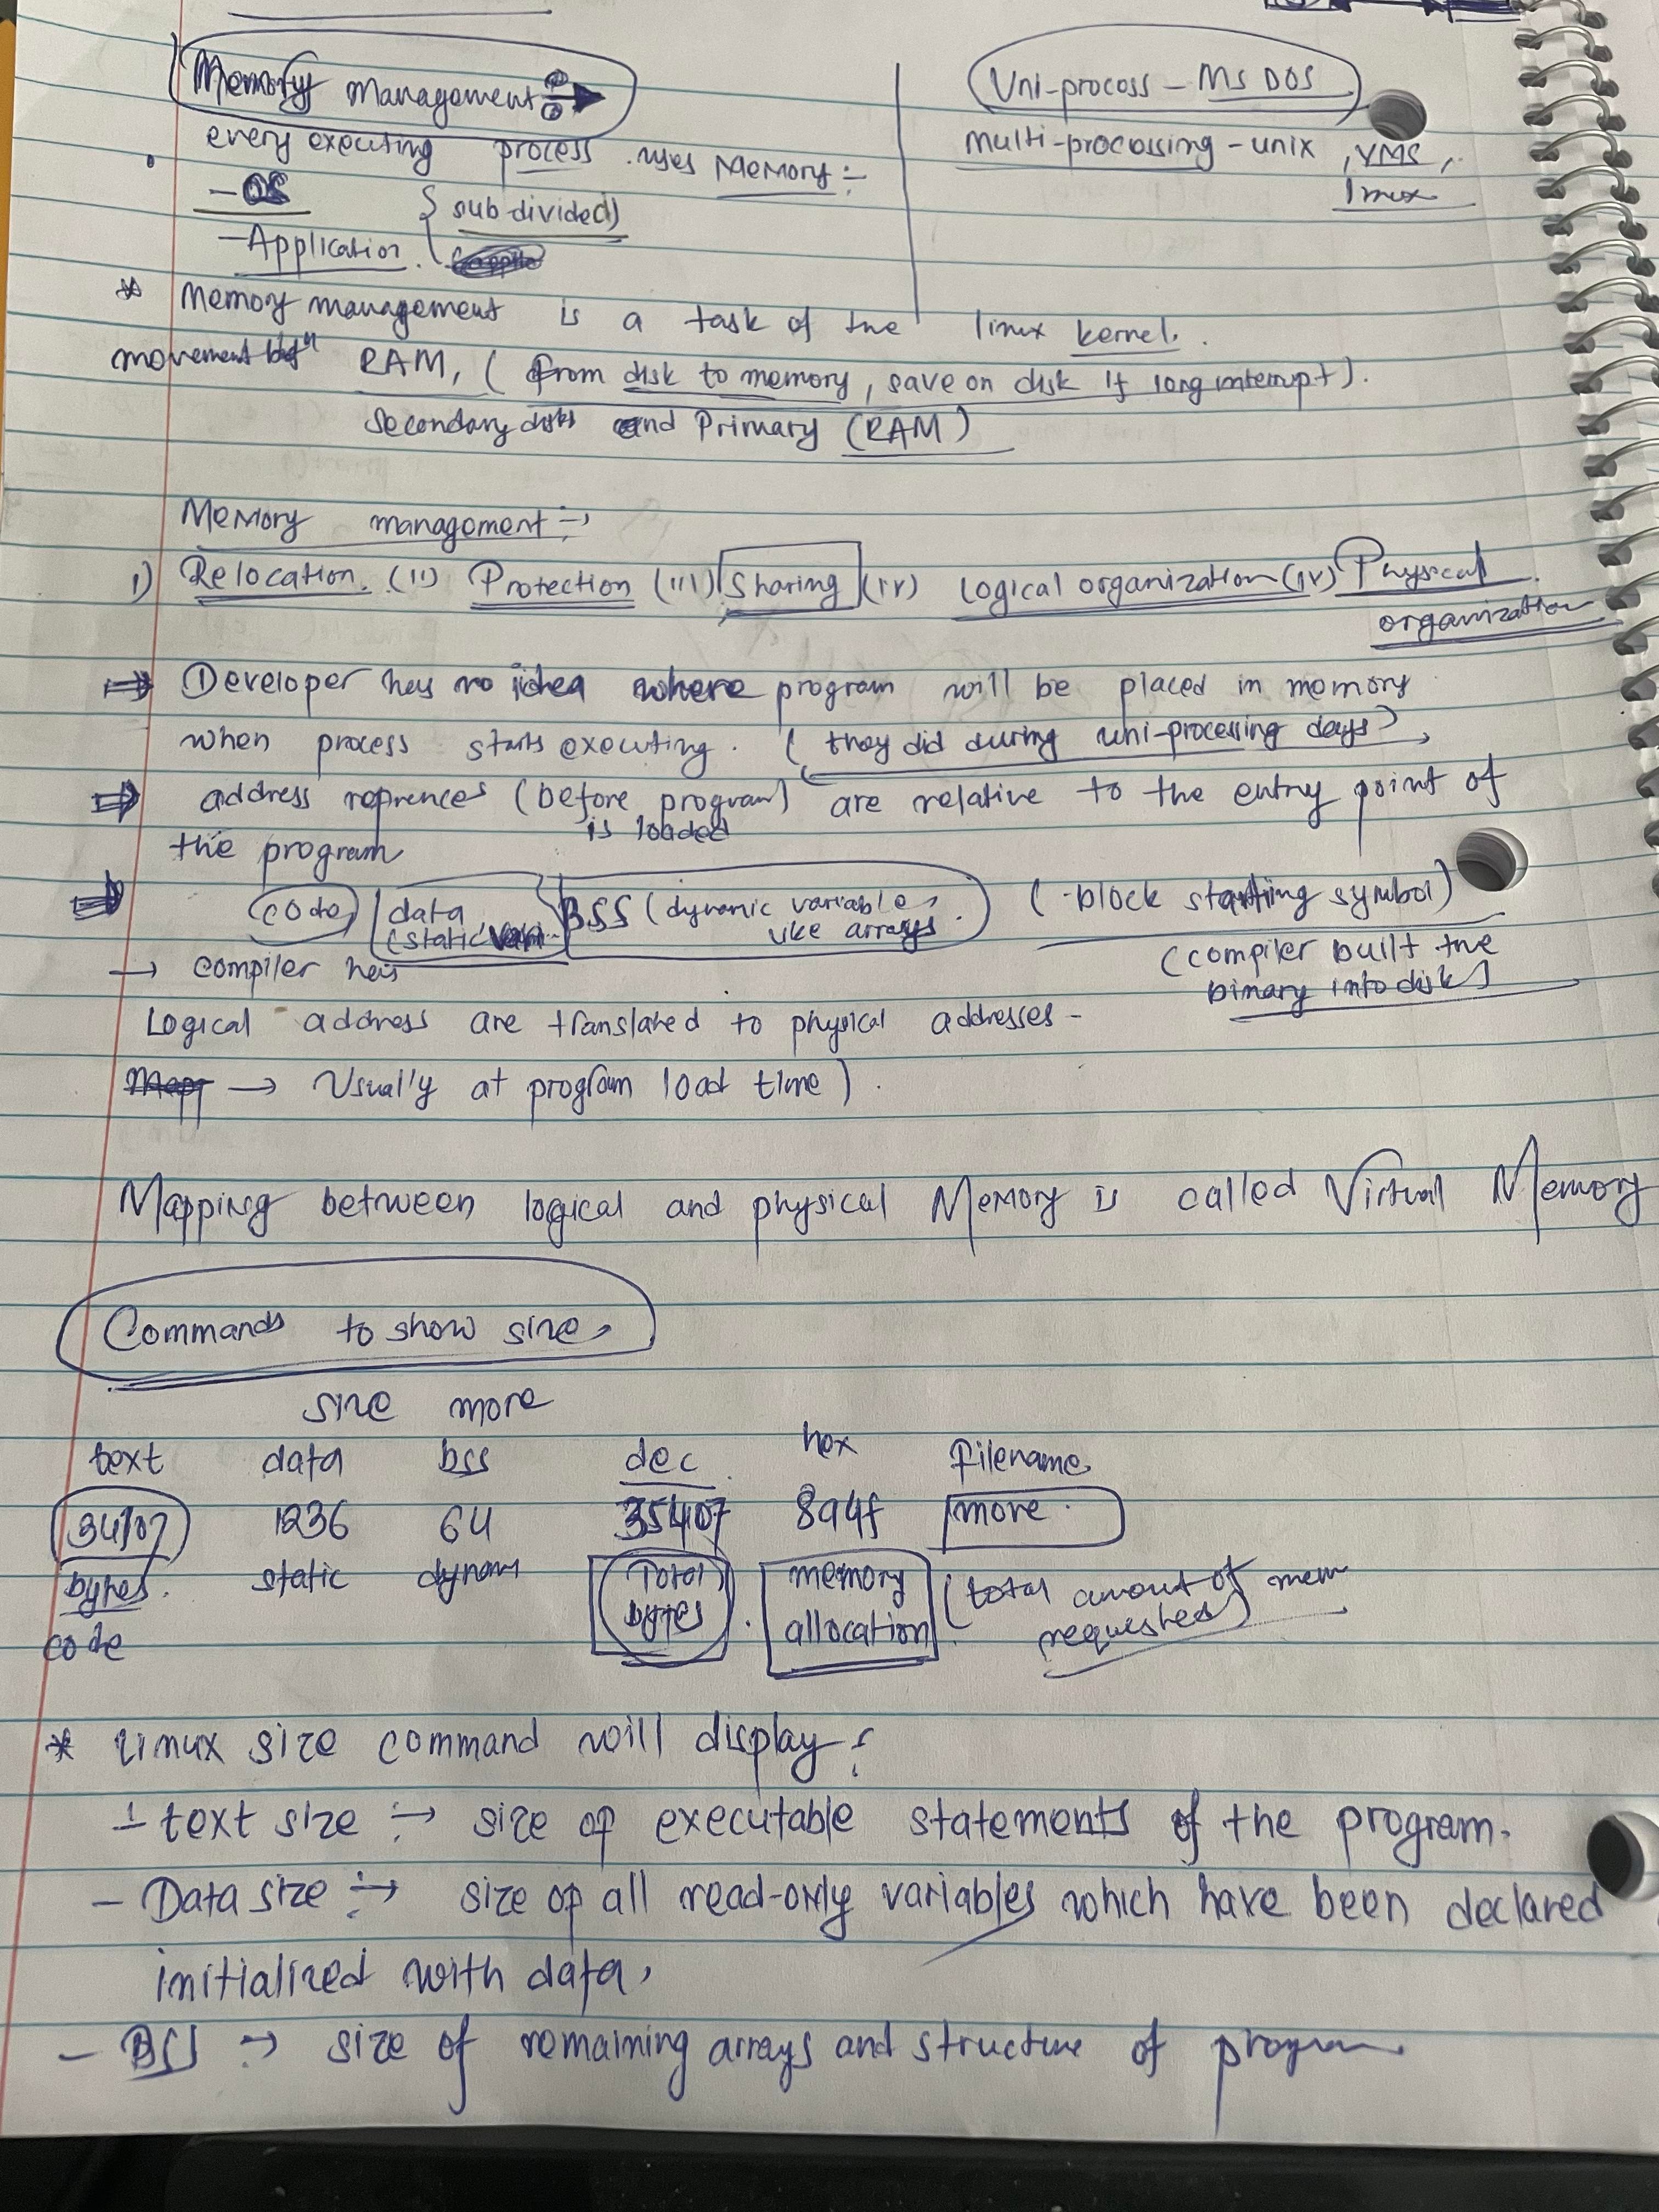 Memory Management
every executing process uses Memory :-
- OS
- Application
sub-divided
Uni-process - MS DOS
multi-processing - unix, VMS,
linux
* Memory management is a task of the linux kernel.
movement RAM, (from disk to memory, save on disk if long interrupt).
secondary disks and Primary (RAM)
Memory management :-
i) Relocation. (ii) Protection (iii) Sharing (iv) Logical organization (iv) Physical
organization
⇒ Developer has no idea where program will be placed in memory
when process starts executing. (they did during uni-processing days)
⇒ address (before program) are relative to the entry point of
is loaded
the program
⇒ code data BSS (dynamic variable, (block starting symbol)
(static vari like arrays
(compiler built the
binary into disk)
→ compiler has
Logical address are translated to physical addresses -
→ Usually at program load time).
Mapping between logical and physical Memory is called Virtual Memory
Commands to show size,
size more
text data bss dec hex filename
34107 1236 64 35407 8a4f more.
bytes. static dynam Total memory (total amount of mem
code bytes. allocation requested)
* Linux size command will display :
- text size :→ size of executable statements of the program.
- Data size :→ size of all read-only variables which have been declared
initialized with data,
- BSS :→ size of remaining arrays and structure of program